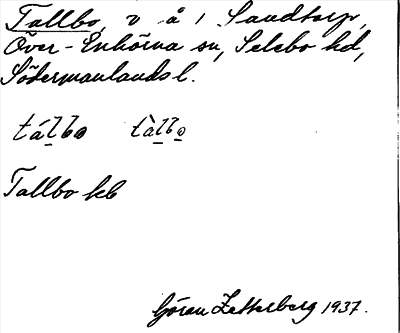 Tallbo, v å 1 Sandtorp,
Över-Enhörna sn, Selebo hd,
Södermanlands l.
tállbo tàllbo
Tallbo kb
Göran Zetterberg 1937.